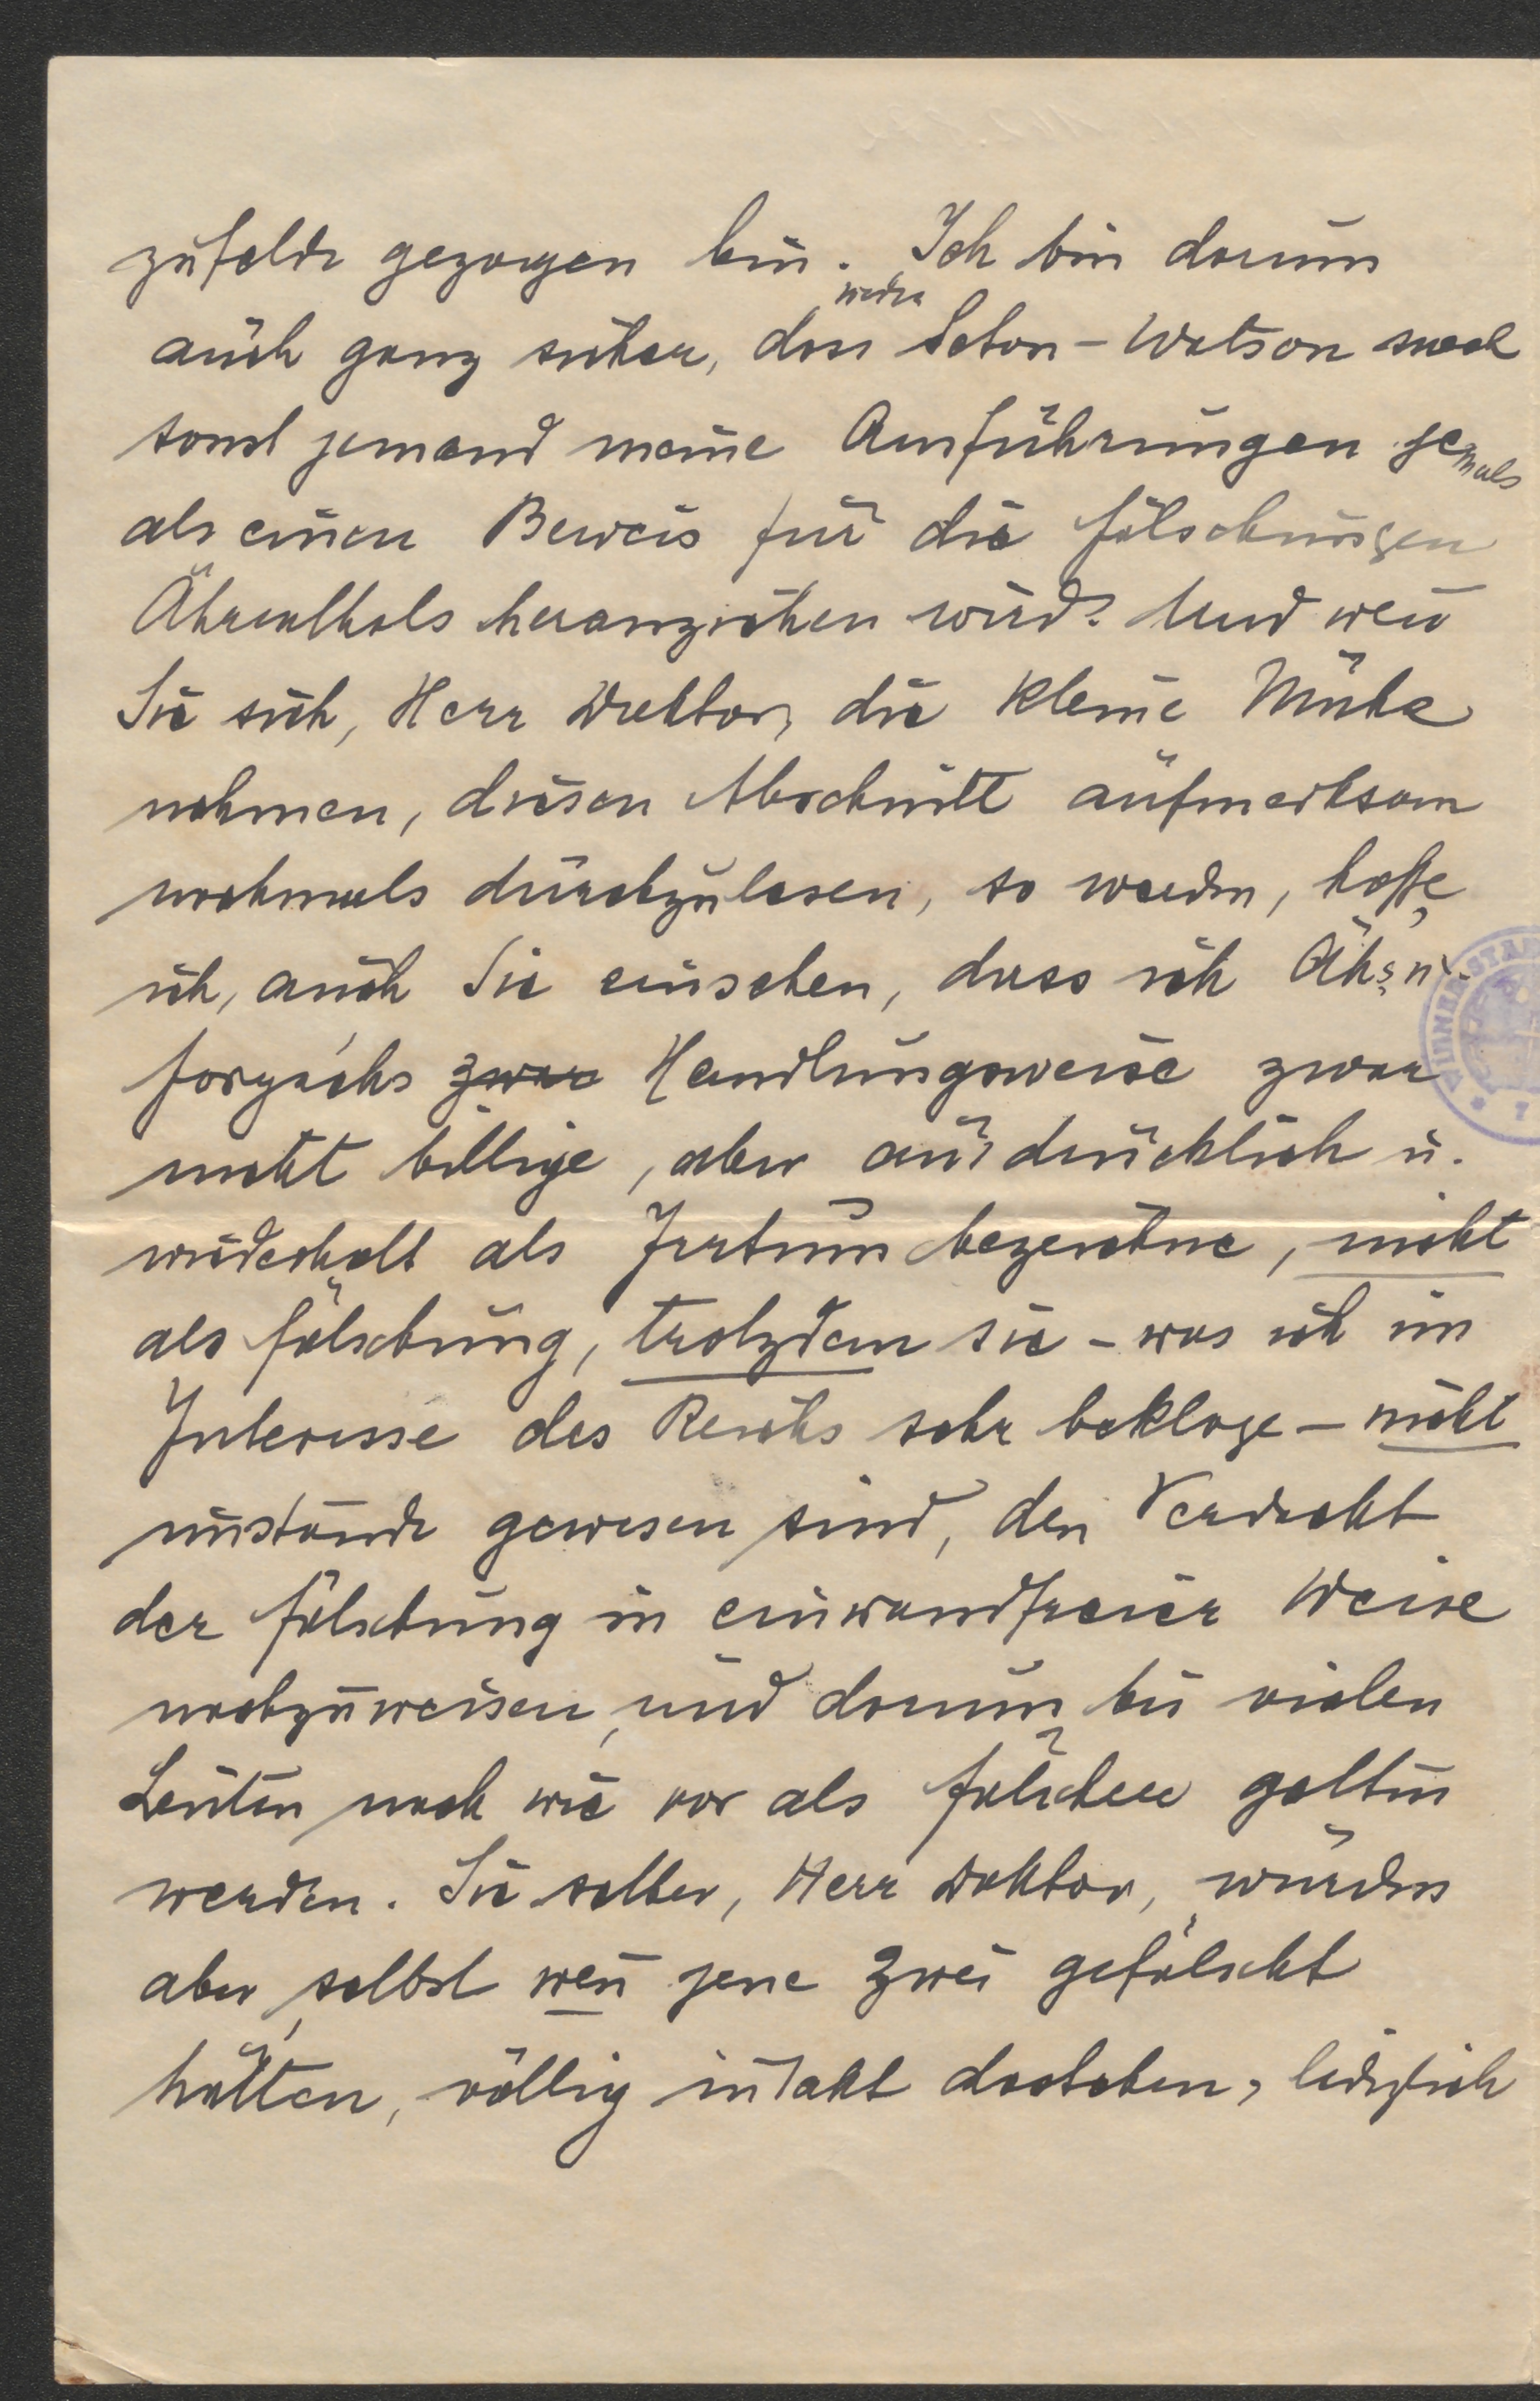 zufelde gezogen bin. Ich bin darum
auch ganz sicher, dass weder Seton-Watson noch
sonst jemand meine Ausführungen jemals
als einen Beweis für die Fälschungen
Ährenthals heranziehen wird. Und wen̅
Sie sich, Herr Doktor, die kleine Mühe
nehmen, diesen Abschnitt aufmerksam
nochmals durchzulesen, so werden, hoffe
ich, auch Sie einsehen, dass ich Äh. u.
Forgáchs zwar Handlungsweise zwar
nicht billige, aber ausdrücklich u.
wiederholt als Irrtum bezeichne, nicht
als Fälschung, trotzdem sie – was ich im
Interesse des Reichs sehr beklage – nicht
imstande gewesen sind, den Verdacht
der Fälschung in einwandfreier Weise
nachzuweisen, und darum bei vielen
Leuten nach wie vor als Fälscher gelten
werden. Sie selber, Herr Doktor, würden
aber, selbst wen̅ jene zwei gefälscht
hätten, völlig intakt dastehen, lediglich